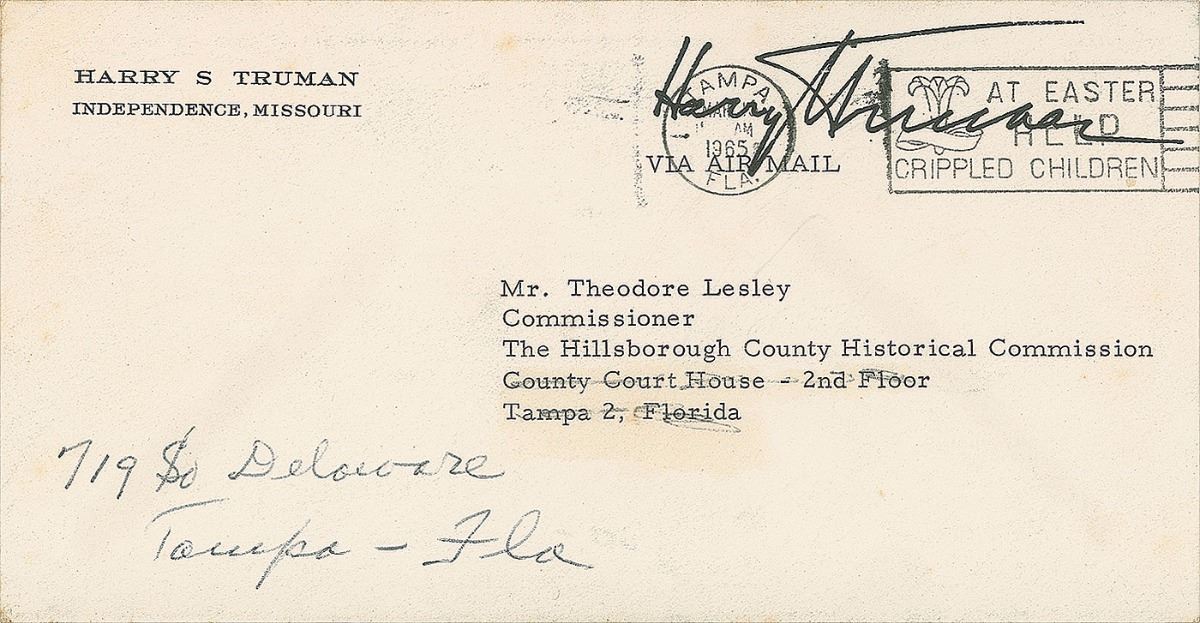 HARRY S TRUMAN
INDEPENDENCE, MISSOURI
Harry Truman
TAMPA
AM
1965
FLA.
AT EASTER
HELP
CRIPPLED CHILDREN
VIA AIR MAIL
Mr. Theodore Lesley
Commissioner
The Hillsborough County Historical Commission
County Court House - 2nd Floor
Tampa 2, Florida
719 So Delaware
Tampa - Fla